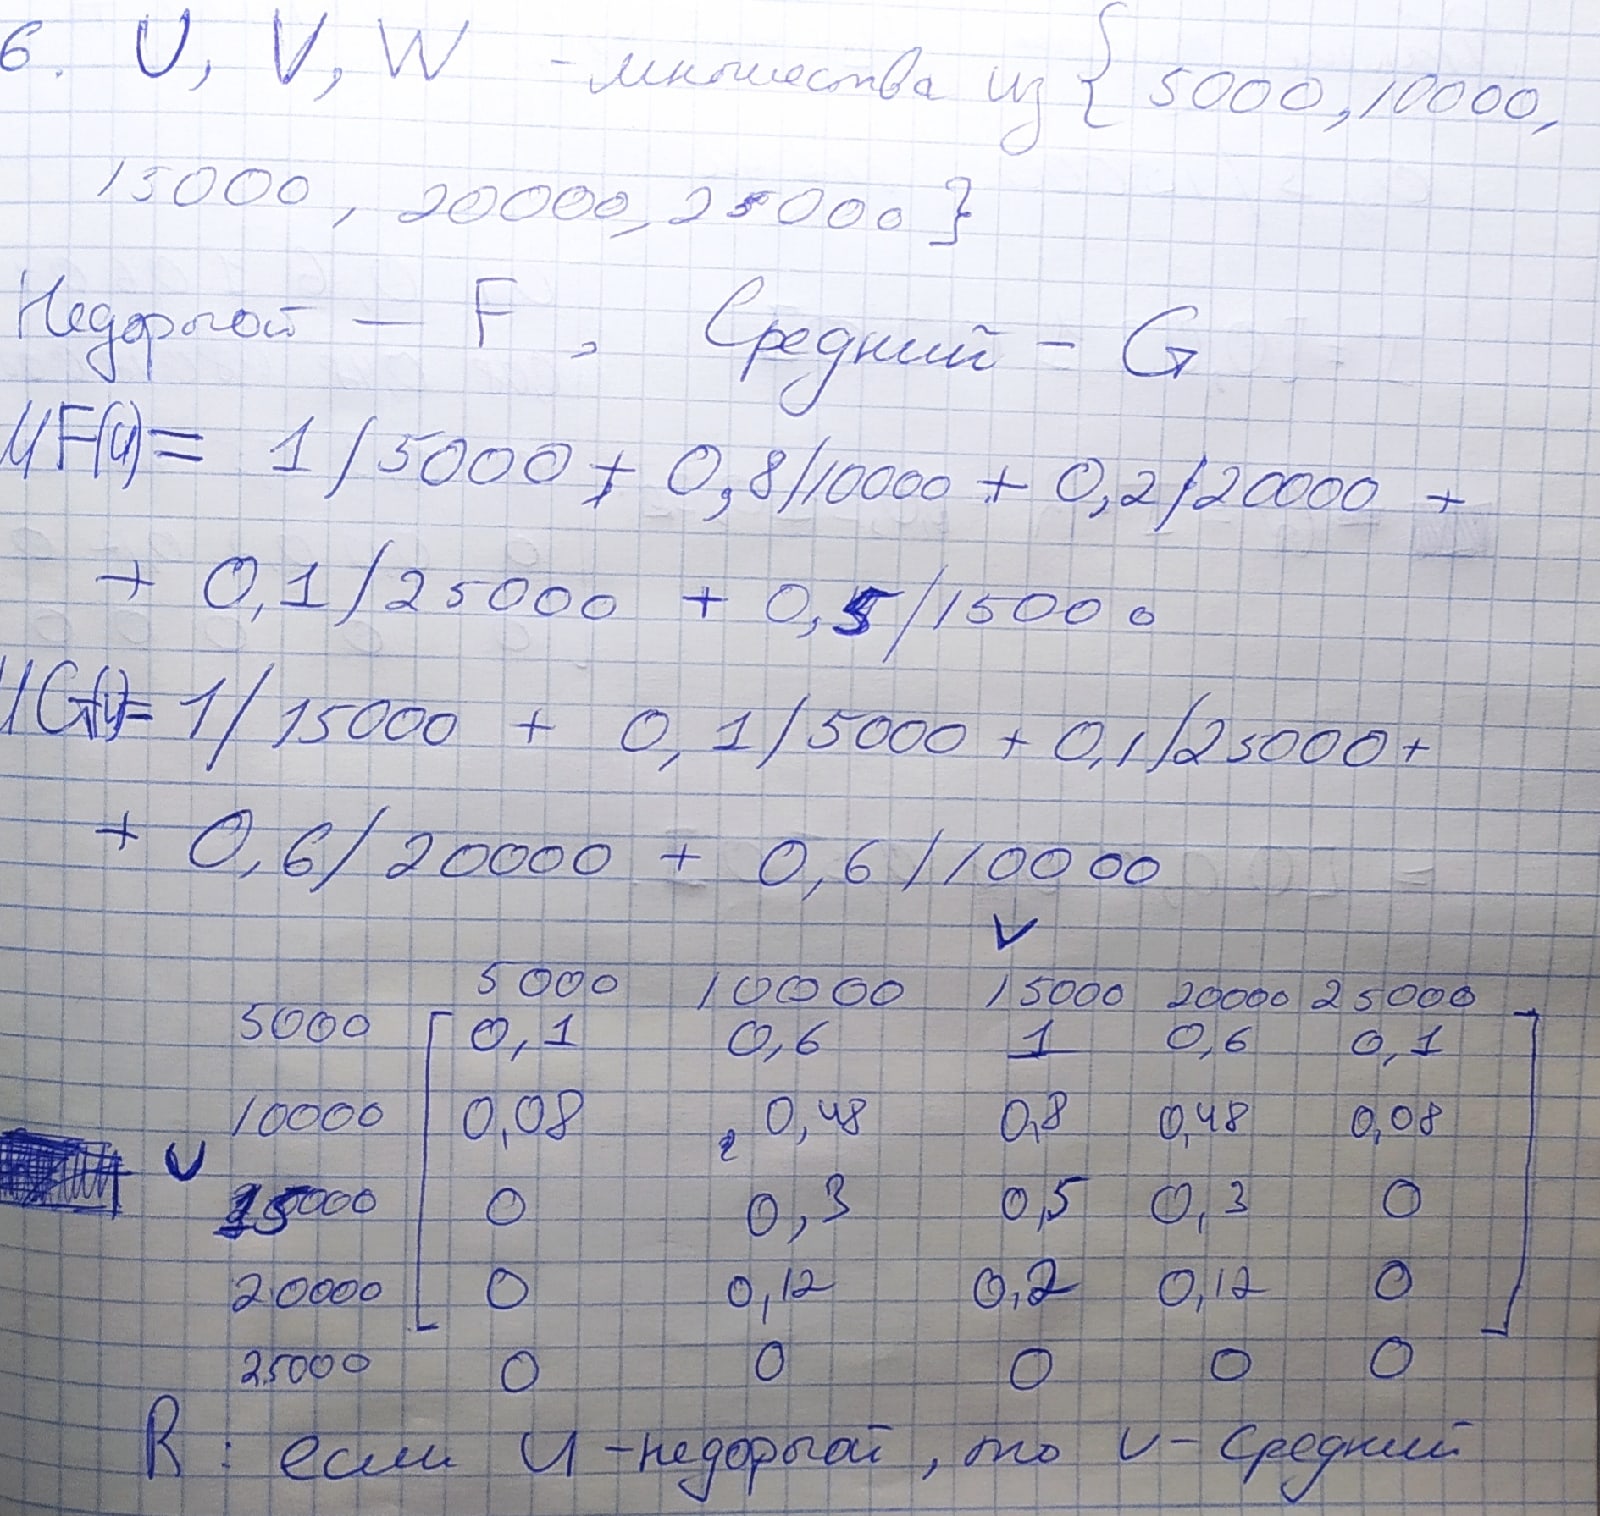 6. U, V, W - множества из { 5000, 10000,
15000, 20000, 25000 }
Недорогой — F, Средний - G
MF(u) = 1/5000 + 0,8/10000 + 0,2/20000 +
+ 0,1/25000 + 0,5/15000
MG(u) = 1/15000 + 0,1/5000 + 0,1/25000 +
+ 0,6/20000 + 0,6/10000
V
5000 10000 15000 20000 25000
5000 0,1 0,6 1 0,6 0,1
10000 0,08 0,48 0,8 0,48 0,08
U
15000 0 0,3 0,5 0,3 0
20000 0 0,12 0,2 0,12 0
25000 0 0 0 0 0
R: если u - недорогой, то v - средний